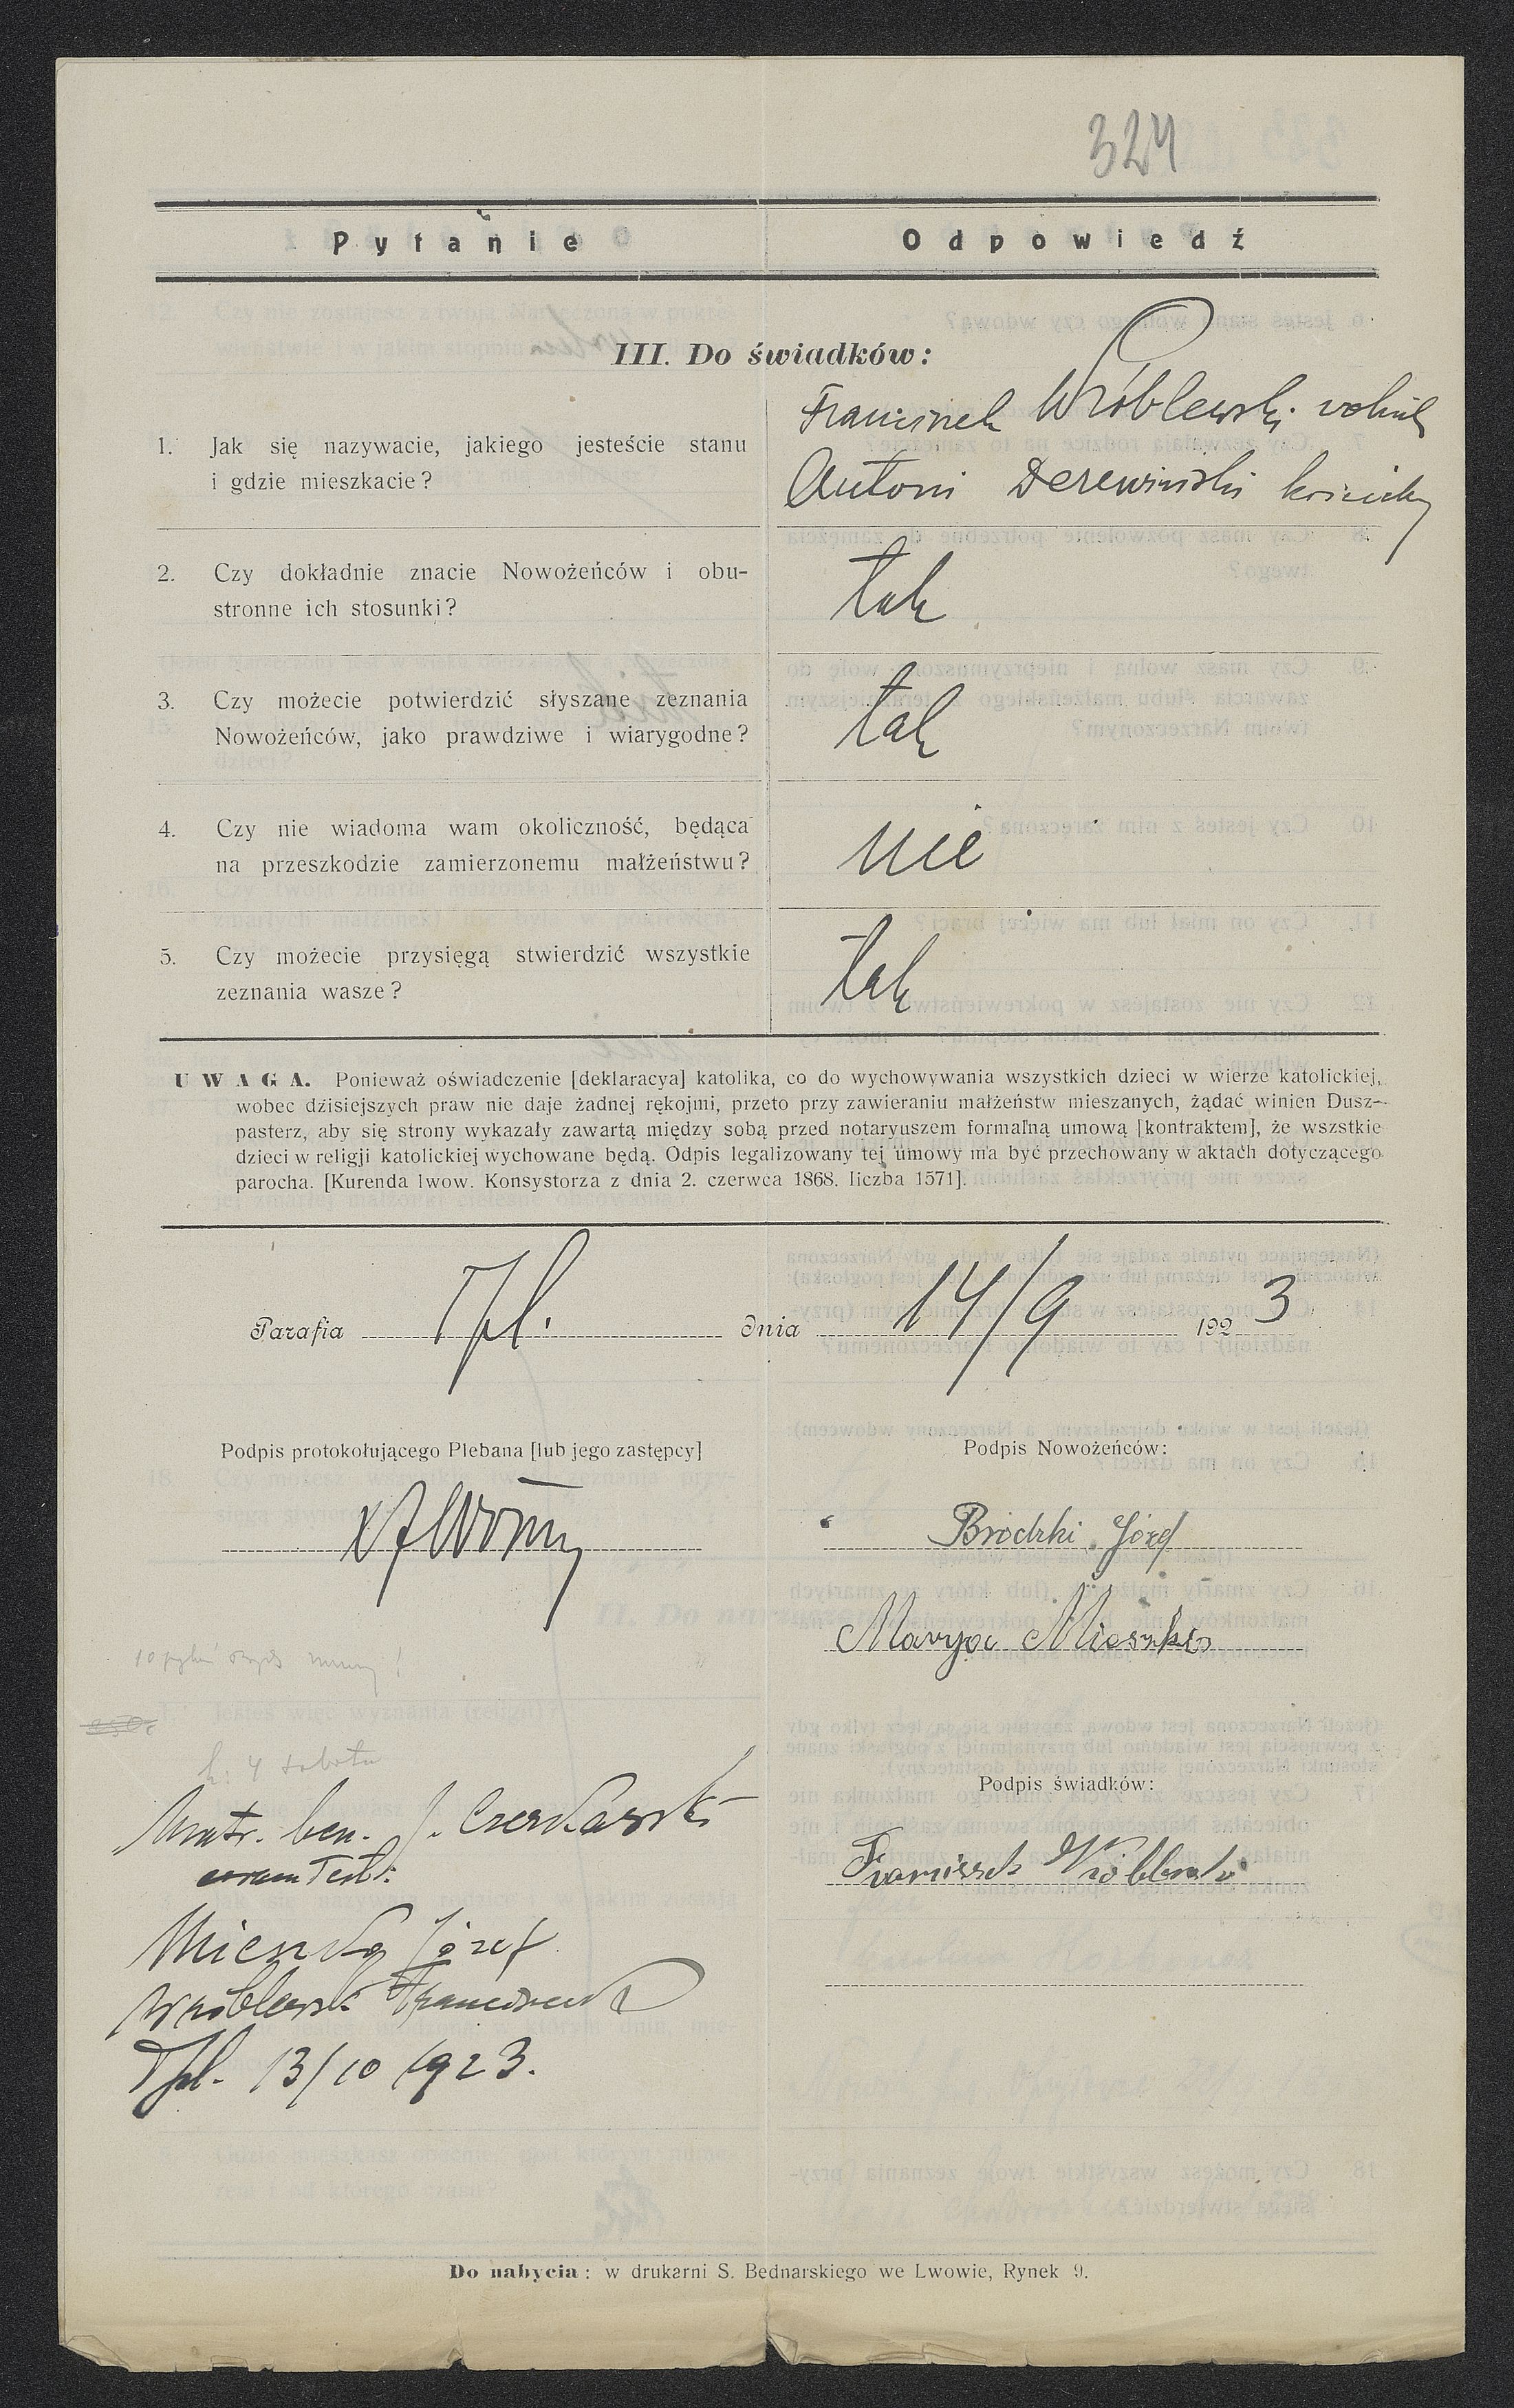 324
Pytanie Odpowiedź
III. Do świadków:
1. Jak się nazywacie, jakiego jesteście stanu
i gdzie mieszkacie?
Franciszek Wróblewski
Antoni Derewiński
2. Czy dokładnie znacie Nowożeńców i obu-
stronne ich stosunki?
tak
3. Czy możecie potwierdzić słyszane zeznania
Nowożeńców, jako prawdziwe i wiarygodne?
tak
4. Czy nie wiadoma wam okoliczność, będąca
na przeszkodzie zamierzonemu małżeństwu?
nie
5. Czy możecie przysięgą stwierdzić wszystkie
zeznania wasze?
tak
UWAGA. Ponieważ oświadczenie [deklaracya] katolika, co do wychowywania wszystkich dzieci w wierze katolickiej,
wobec dzisiejszych praw nie daje żadnej rękojmi, przeto przy zawieraniu małżeństw mieszanych, żądać winien Dusz-
pasterz, aby się strony wykazały zawartą między sobą przed notaryuszem formalną umową [kontraktem], że wszstkie
dzieci w religji katolickiej wychowane będą. Odpis legalizowany tej umowy ma być przechowany w aktach dotyczącego
parocha. [Kurenda lwow. Konsystorza z dnia 2. czerwca 1868. liczba 1571].
Parafia Tpl. dnia 14/9 1923
Podpis protokołującego Plebana [lub jego zastępcy]
Podpis Nowożeńców:
Brodzki Józef
Marya Mieszko
h. 4 sobota
Matr. ben. J. Czerkawski
coram Test.
Podpis świadków:
Franciszek Wróblewski
Mieszko Józef
Wróblewski Franciszek
Tpl. 13/10 1923.
Do nabycia: w drukarni S. Bednarskiego we Lwowie, Rynek 9.